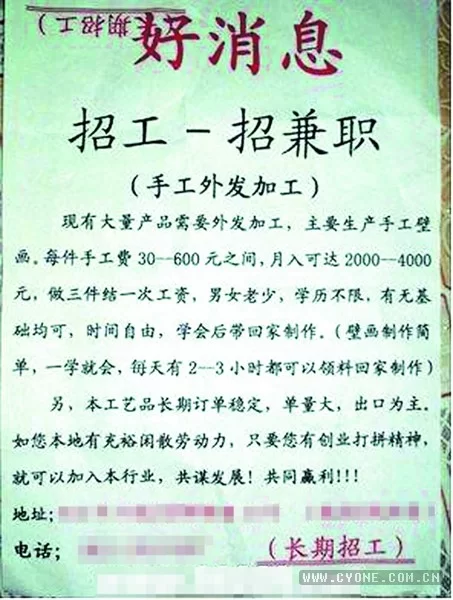 （长期招工）
好消息
招工－招兼职
（手工外发加工）
现有大量产品需要外发加工，主要生产手工壁
画。每件手工费30--600元之间，月入可达2000--4000
元，做三件结一次工资，男女老少，学历不限，有无基
础均可，时间自由，学会后带回家制作。（壁画制作简
单，一学就会，每天有2--3小时都可以领料回家制作）
另，本工艺品长期订单稳定，单量大，出口为主。
如您本地有充裕闲散劳动力，只要您有创业打拼精神，
就可以加入本行业，共谋发展！共同赢利!!!
地址；
电话；
（长期招工）
WWW.CYONE.COM.CN